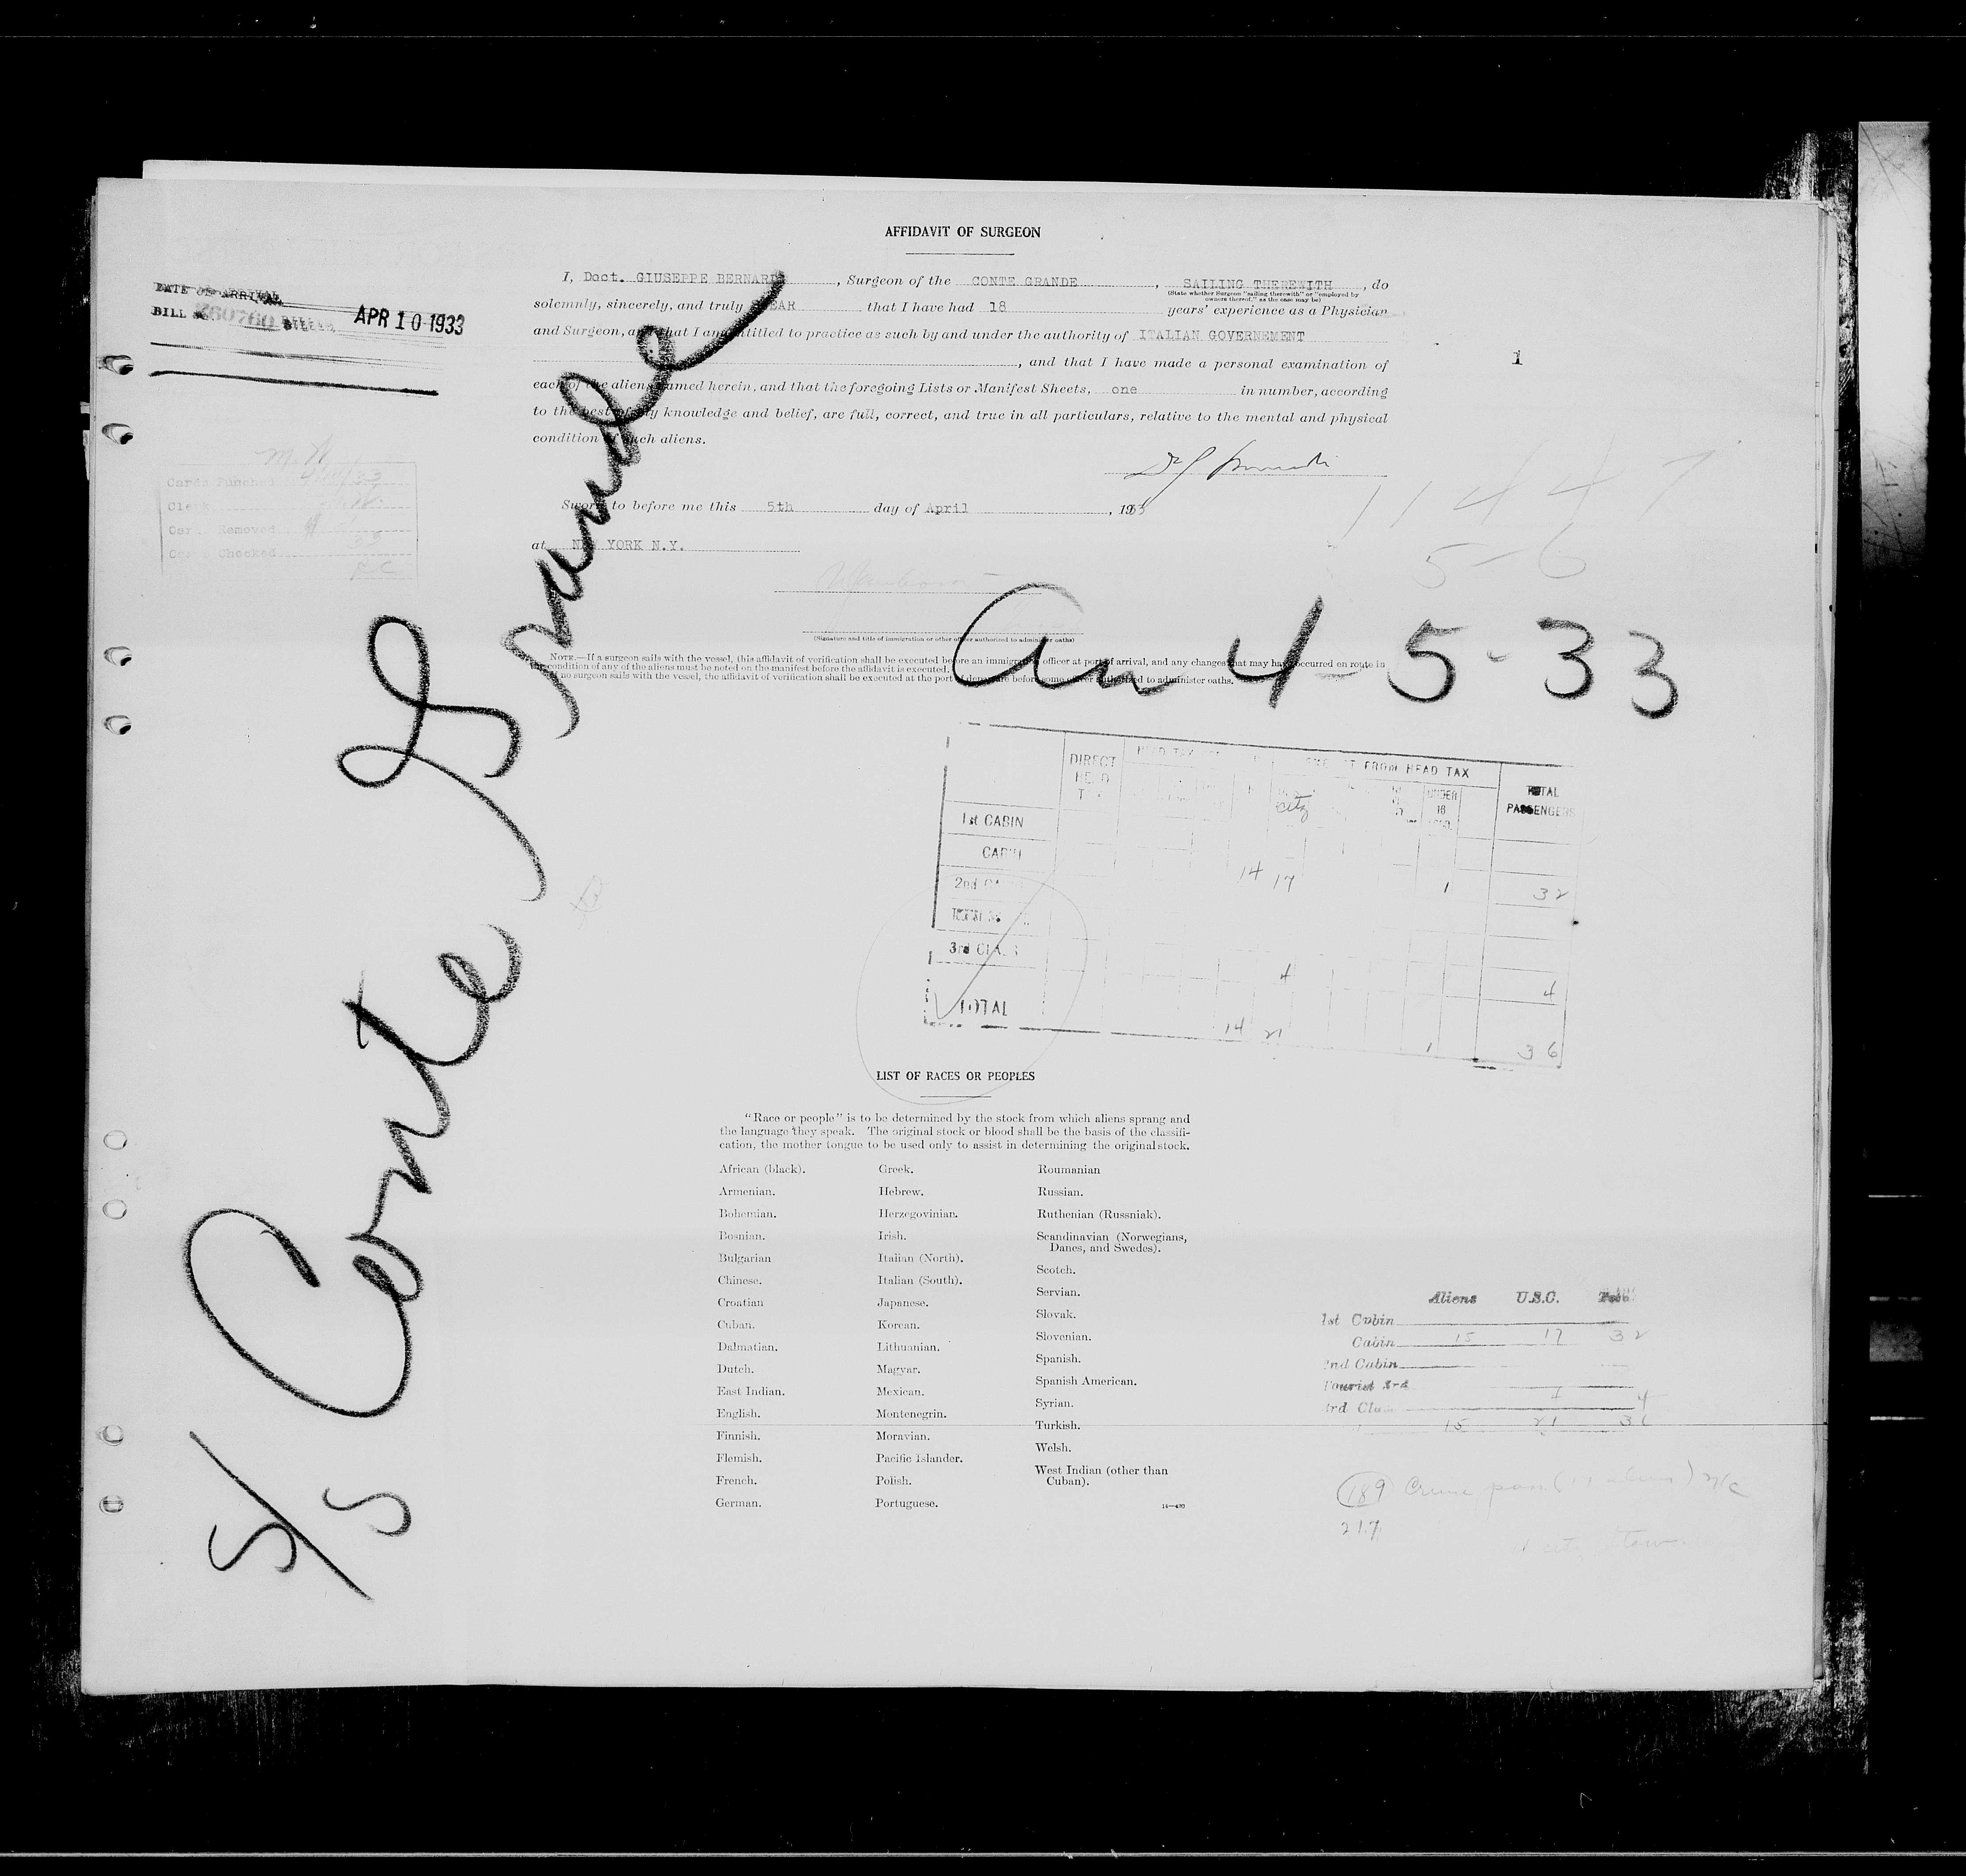 AFFIDAVIT OF SURGEON
I, Doct. GIUSEPPE BERNARDI, Surgeon of the CONTE GRANDE, SAILING THEREWITH, do
(State whether Surgeon "sailing therewith" or "employed by
owners thereof," as the case may be)
solemnly, sincerely, and truly SWEAR that I have had 18 years' experience as a Physician
and Surgeon, and that I am entitled to practice as such by and under the authority of ITALIAN GOVERNEMENT
, and that I have made a personal examination of
each of the aliens named herein, and that the foregoing Lists or Manifest Sheets, one in number, according
to the best of my knowledge and belief, are full, correct, and true in all particulars, relative to the mental and physical
condition of such aliens.
Sworn to before me this 5th day of April, 1933
at NEW YORK N.Y.
(Signature and title of immigration or other officer authorized to administer oaths)
NOTE.—If a surgeon sails with the vessel, this affidavit of verification shall be executed before an immigration officer at port of arrival, and any changes that may have occurred en route in
the condition of any of the aliens must be noted on the manifest before the affidavit is executed.
If no surgeon sails with the vessel, the affidavit of verification shall be executed at the port of departure before some officer authorized to administer oaths.
DATE OF ARRIVAL
BILL APR 10 1933
1
Cards Punched
Clerk
Card Removed
Cards Checked
1144 7
5-6
S/S Conte Grande
Arr 4-5-33
DIRECT HEAD TAX
EXEMPT FROM HEAD TAX
UNDER 16
TOTAL PASSENGERS
citz
1st CABIN
CABIN 14 17 1 32
2nd CABIN
3rd CLASS 4 4
TOTAL 14 21 1 36
LIST OF RACES OR PEOPLES
"Race or people" is to be determined by the stock from which aliens sprang and
the language they speak. The original stock or blood shall be the basis of the classifi-
cation, the mother tongue to be used only to assist in determining the original stock.
African (black).
Armenian.
Bohemian.
Bosnian.
Bulgarian
Chinese.
Croatian
Cuban.
Dalmatian.
Dutch.
East Indian.
English.
Finnish.
Flemish.
French.
German.
Greek.
Hebrew.
Herzegovinian.
Irish.
Italian (North).
Italian (South).
Japanese.
Korean.
Lithuanian.
Magyar.
Mexican.
Montenegrin.
Moravian.
Pacific Islander.
Polish.
Portuguese.
Roumanian
Russian.
Ruthenian (Russniak).
Scandinavian (Norwegians,
Danes, and Swedes).
Scotch.
Servian.
Slovak.
Slovenian.
Spanish.
Spanish American.
Syrian.
Turkish.
Welsh.
West Indian (other than
Cuban).
Aliens U.S.C. Total
1st Cabin
Cabin 15 17 32
2nd Cabin
Tourist 3rd
3rd Class 4 4
15 21 36
189
217